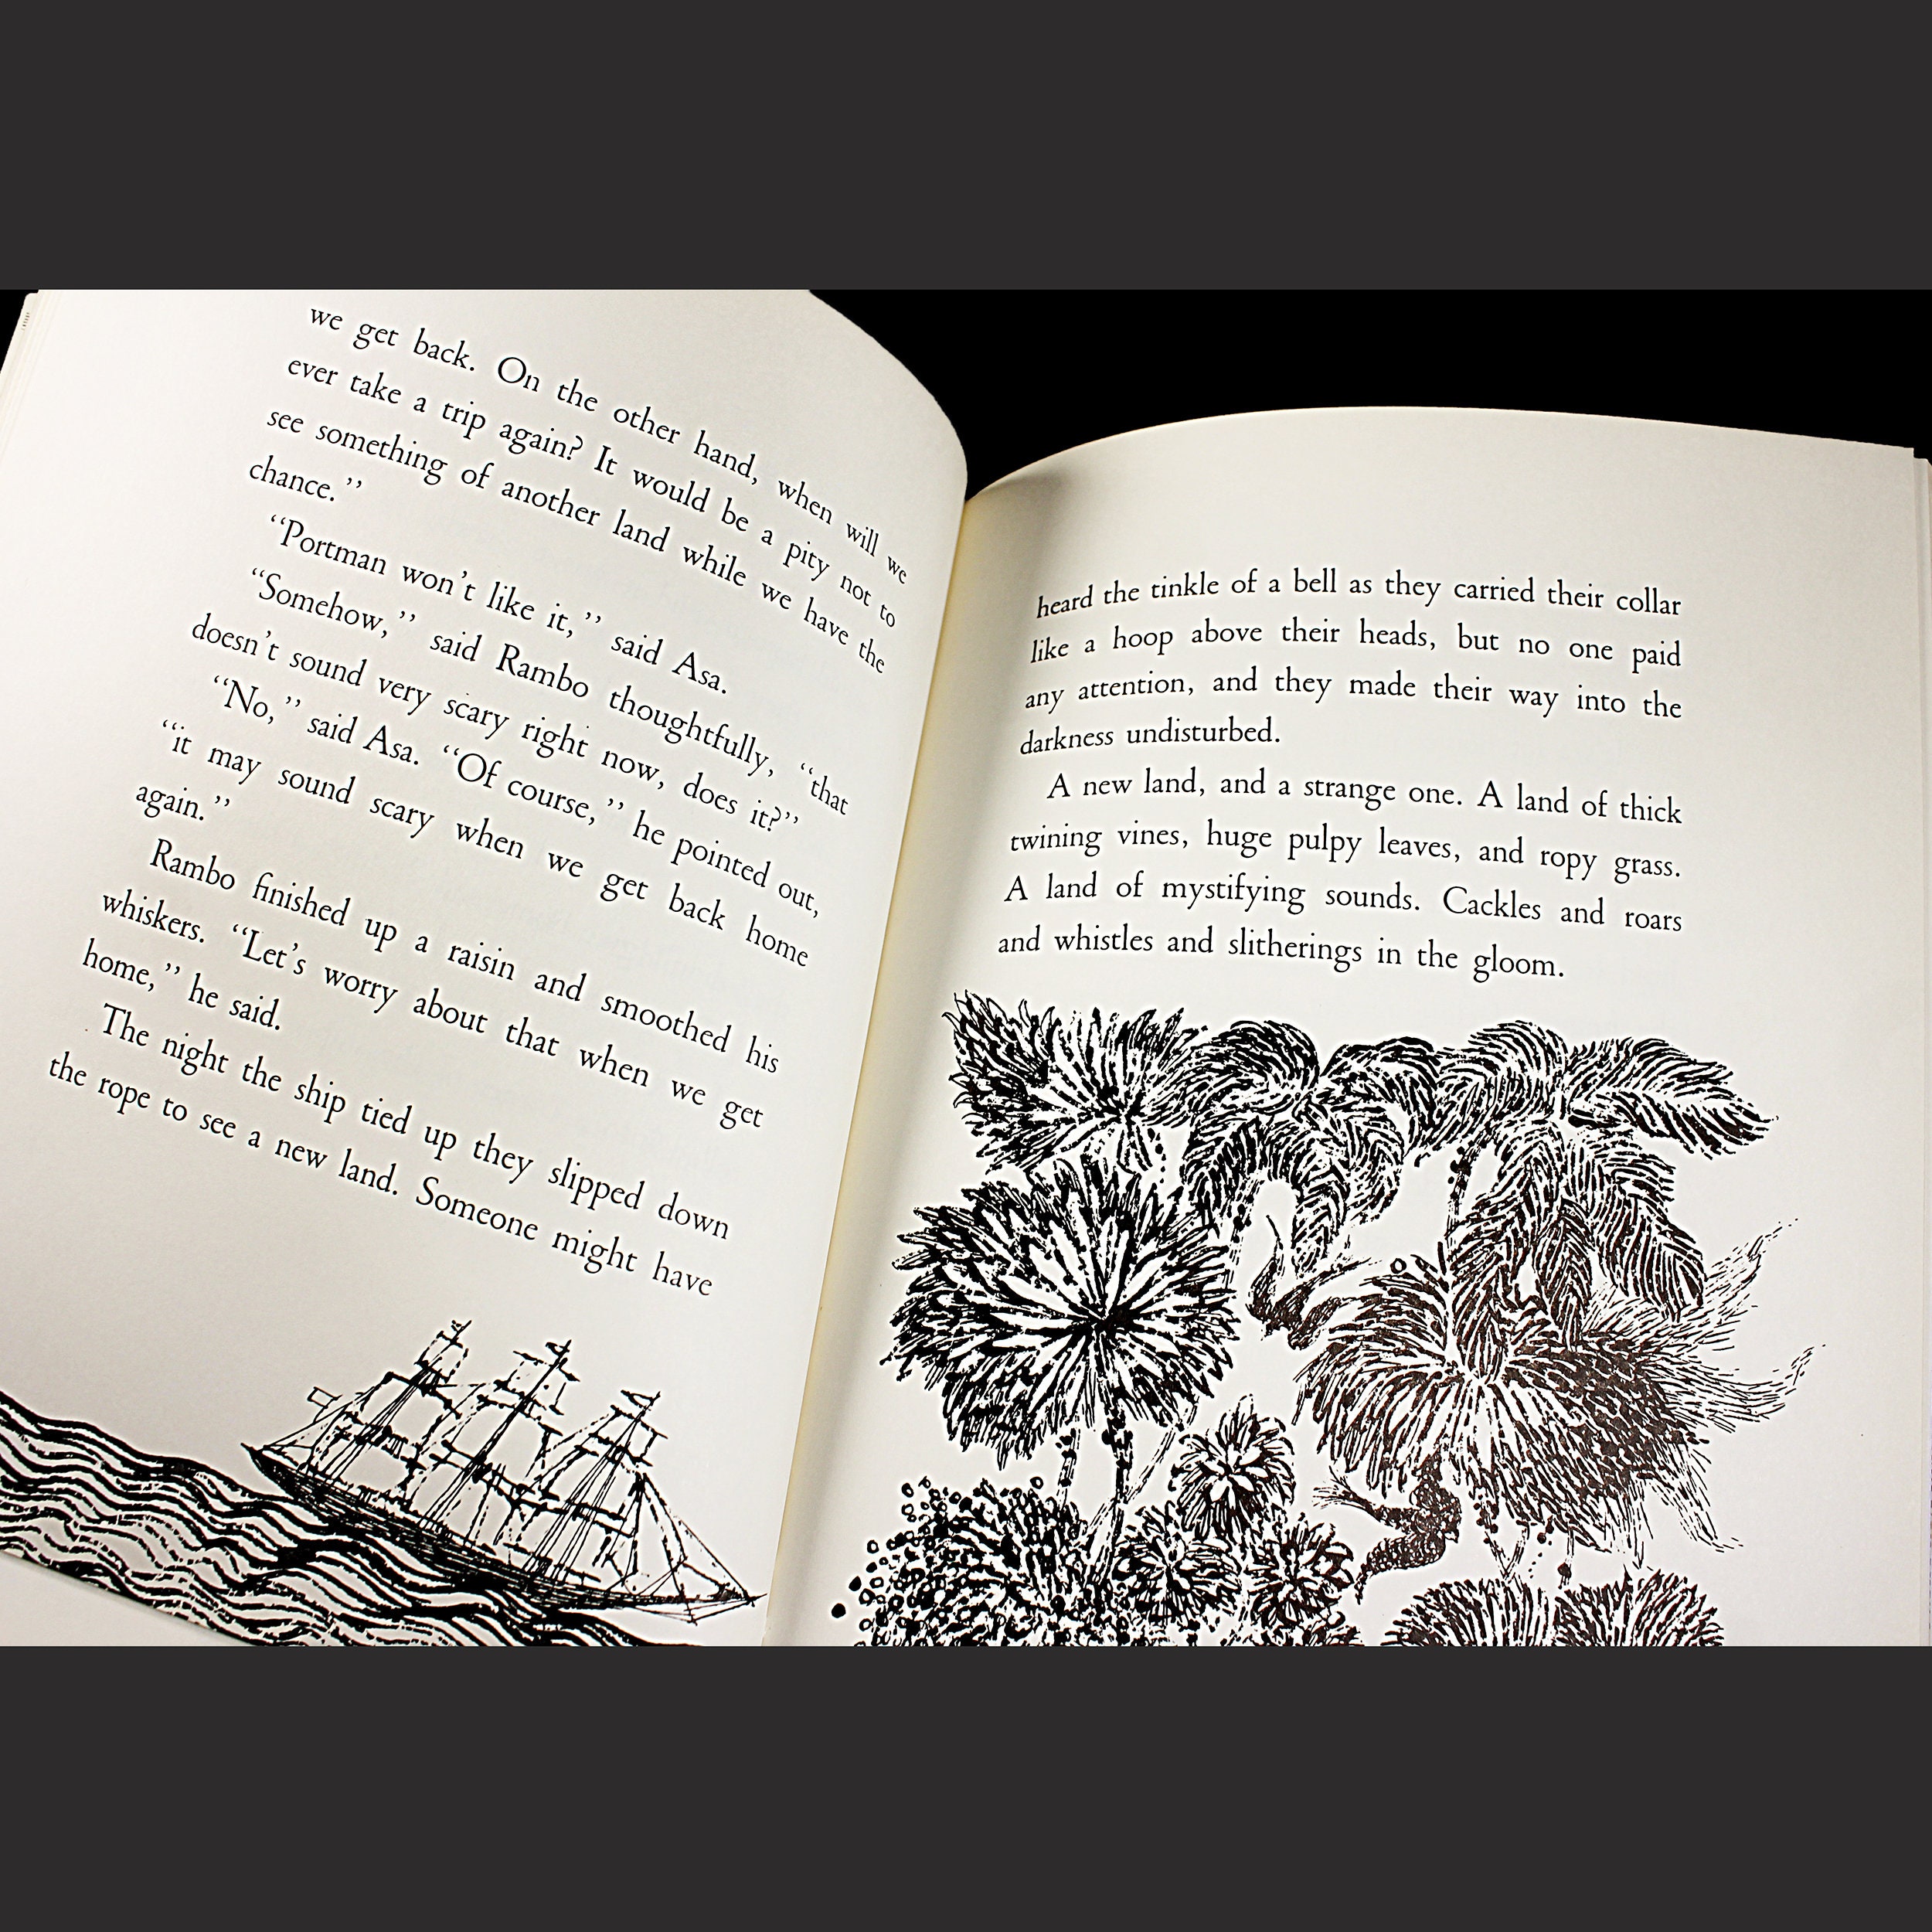 we get back. On the other hand, when will we
ever take a trip again? It would be a pity not to
see something of another land while we have the
chance.”
“Portman won’t like it,” said Asa.
“Somehow,” said Rambo thoughtfully, “that
doesn’t sound very scary right now, does it?”
“No,” said Asa. “Of course,” he pointed out,
“it may sound scary when we get back home
again.”
Rambo finished up a raisin and smoothed his
whiskers. “Let’s worry about that when we get
home,” he said.
The night the ship tied up they slipped down
the rope to see a new land. Someone might have
heard the tinkle of a bell as they carried their collar
like a hoop above their heads, but no one paid
any attention, and they made their way into the
darkness undisturbed.
A new land, and a strange one. A land of thick
twining vines, huge pulpy leaves, and ropy grass.
A land of mystifying sounds. Cackles and roars
and whistles and slitherings in the gloom.